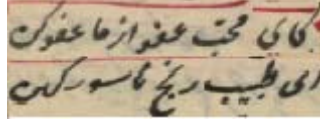 کای محب عفو از ما عفو کن
ای طبیب رنج ناسور کهن